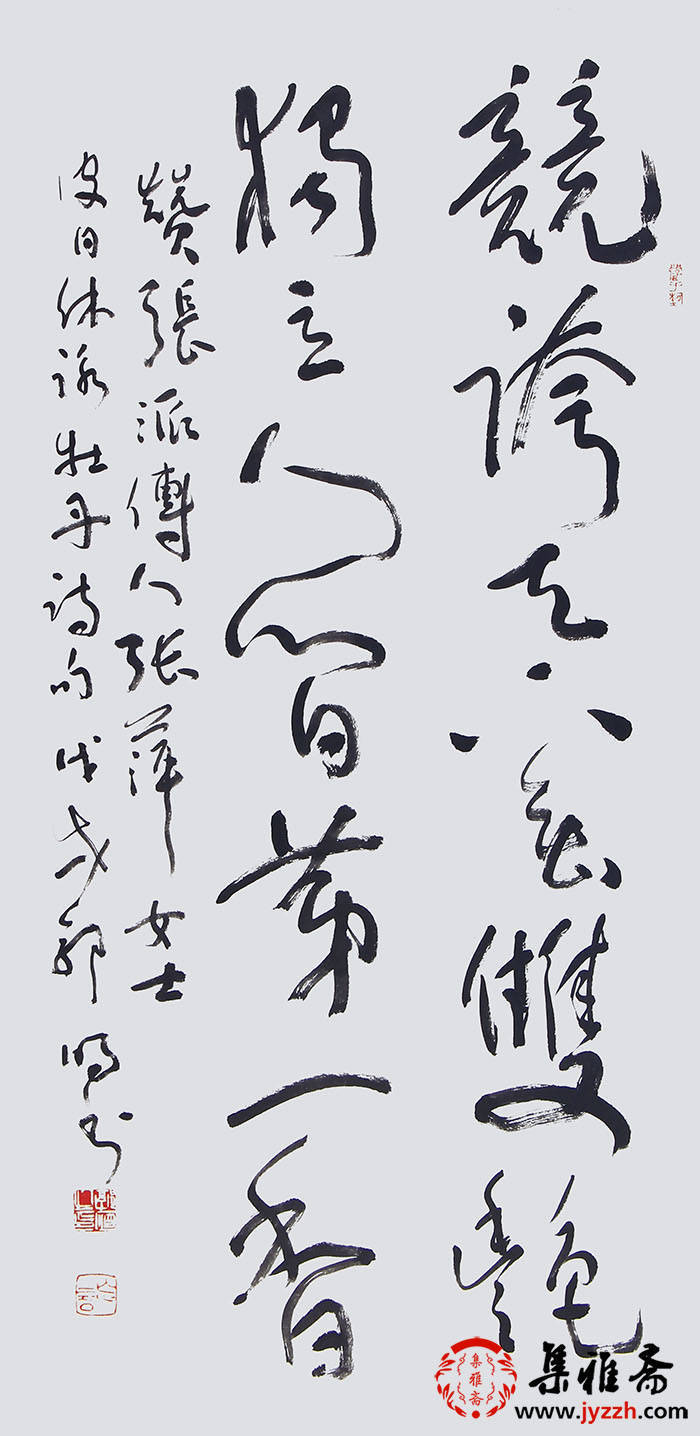 競誇天下無雙艷
獨立人間第一香
贊張派傳人张萍女士
皮日休詠牡丹詩句戊戌郭鸣书
集雅斋
集雅斋
www.jyzzh.com